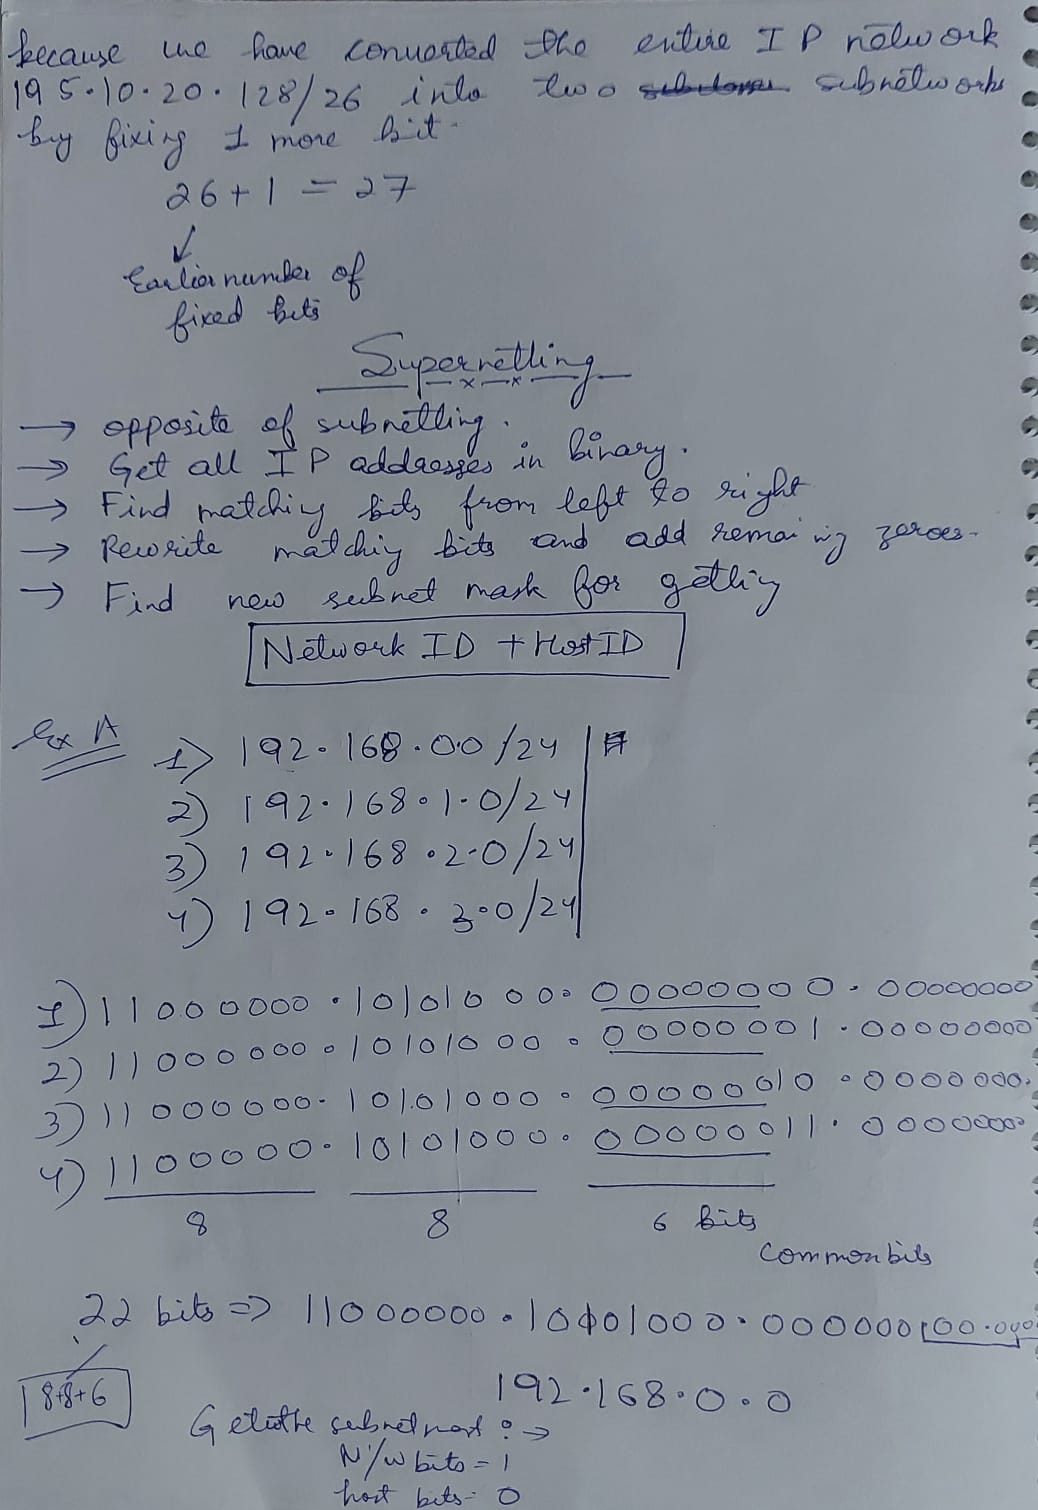 because we have converted the entire IP network
195.10.20.128/26 into two subnetworks
by fixing 1 more bit.
26+1 = 27
↓
Earlier number of
fixed bits
Supernetting
→ opposite of subnetting.
→ Get all IP addresses in binary.
→ Find matching bits from left to right
→ Rewrite matching bits and add remaining zeroes.
→ Find new subnet mask for getting
Network ID + Host ID
Ex A
1) 192.168.0.0/24
2) 192.168.1.0/24
3) 192.168.2.0/24
4) 192.168.3.0/24
1) 11000000.10101000.00000000.00000000
2) 11000000.10101000.00000001.00000000
3) 11000000.10101000.00000010.0000000.
4) 1100000.10101000.00000011.00000000
8 8 6 bits
Common bits
22 bits => 11000000.10101000.00000000.000
8+8+6
192.168.0.0
Get the subnet mask : →
N/w bits = 1
host bits = 0